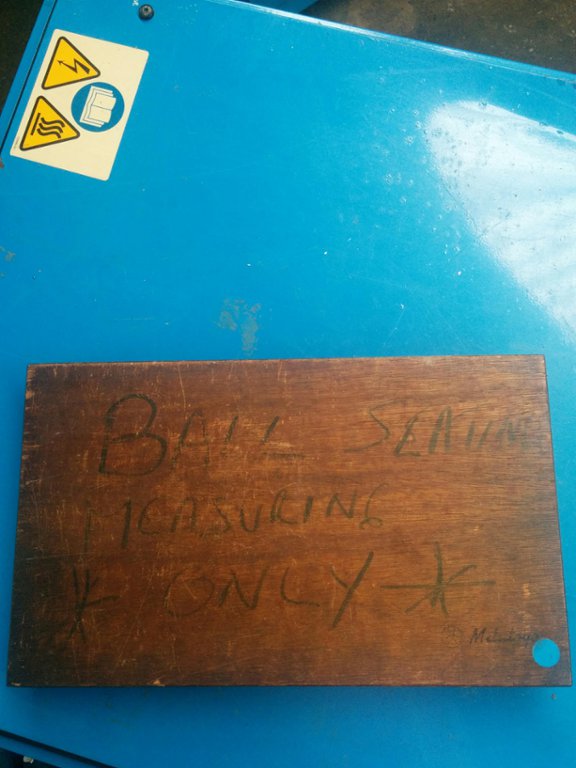 BALL SEATING
MEASURING
* ONLY *
Mitutoyo